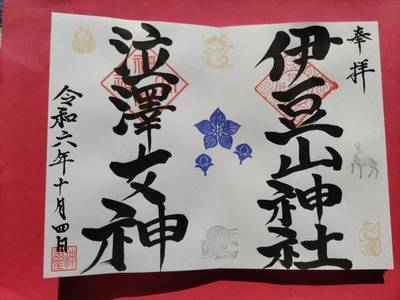 奉拝
伊豆山神社
泣澤女神
令和六年十月四日